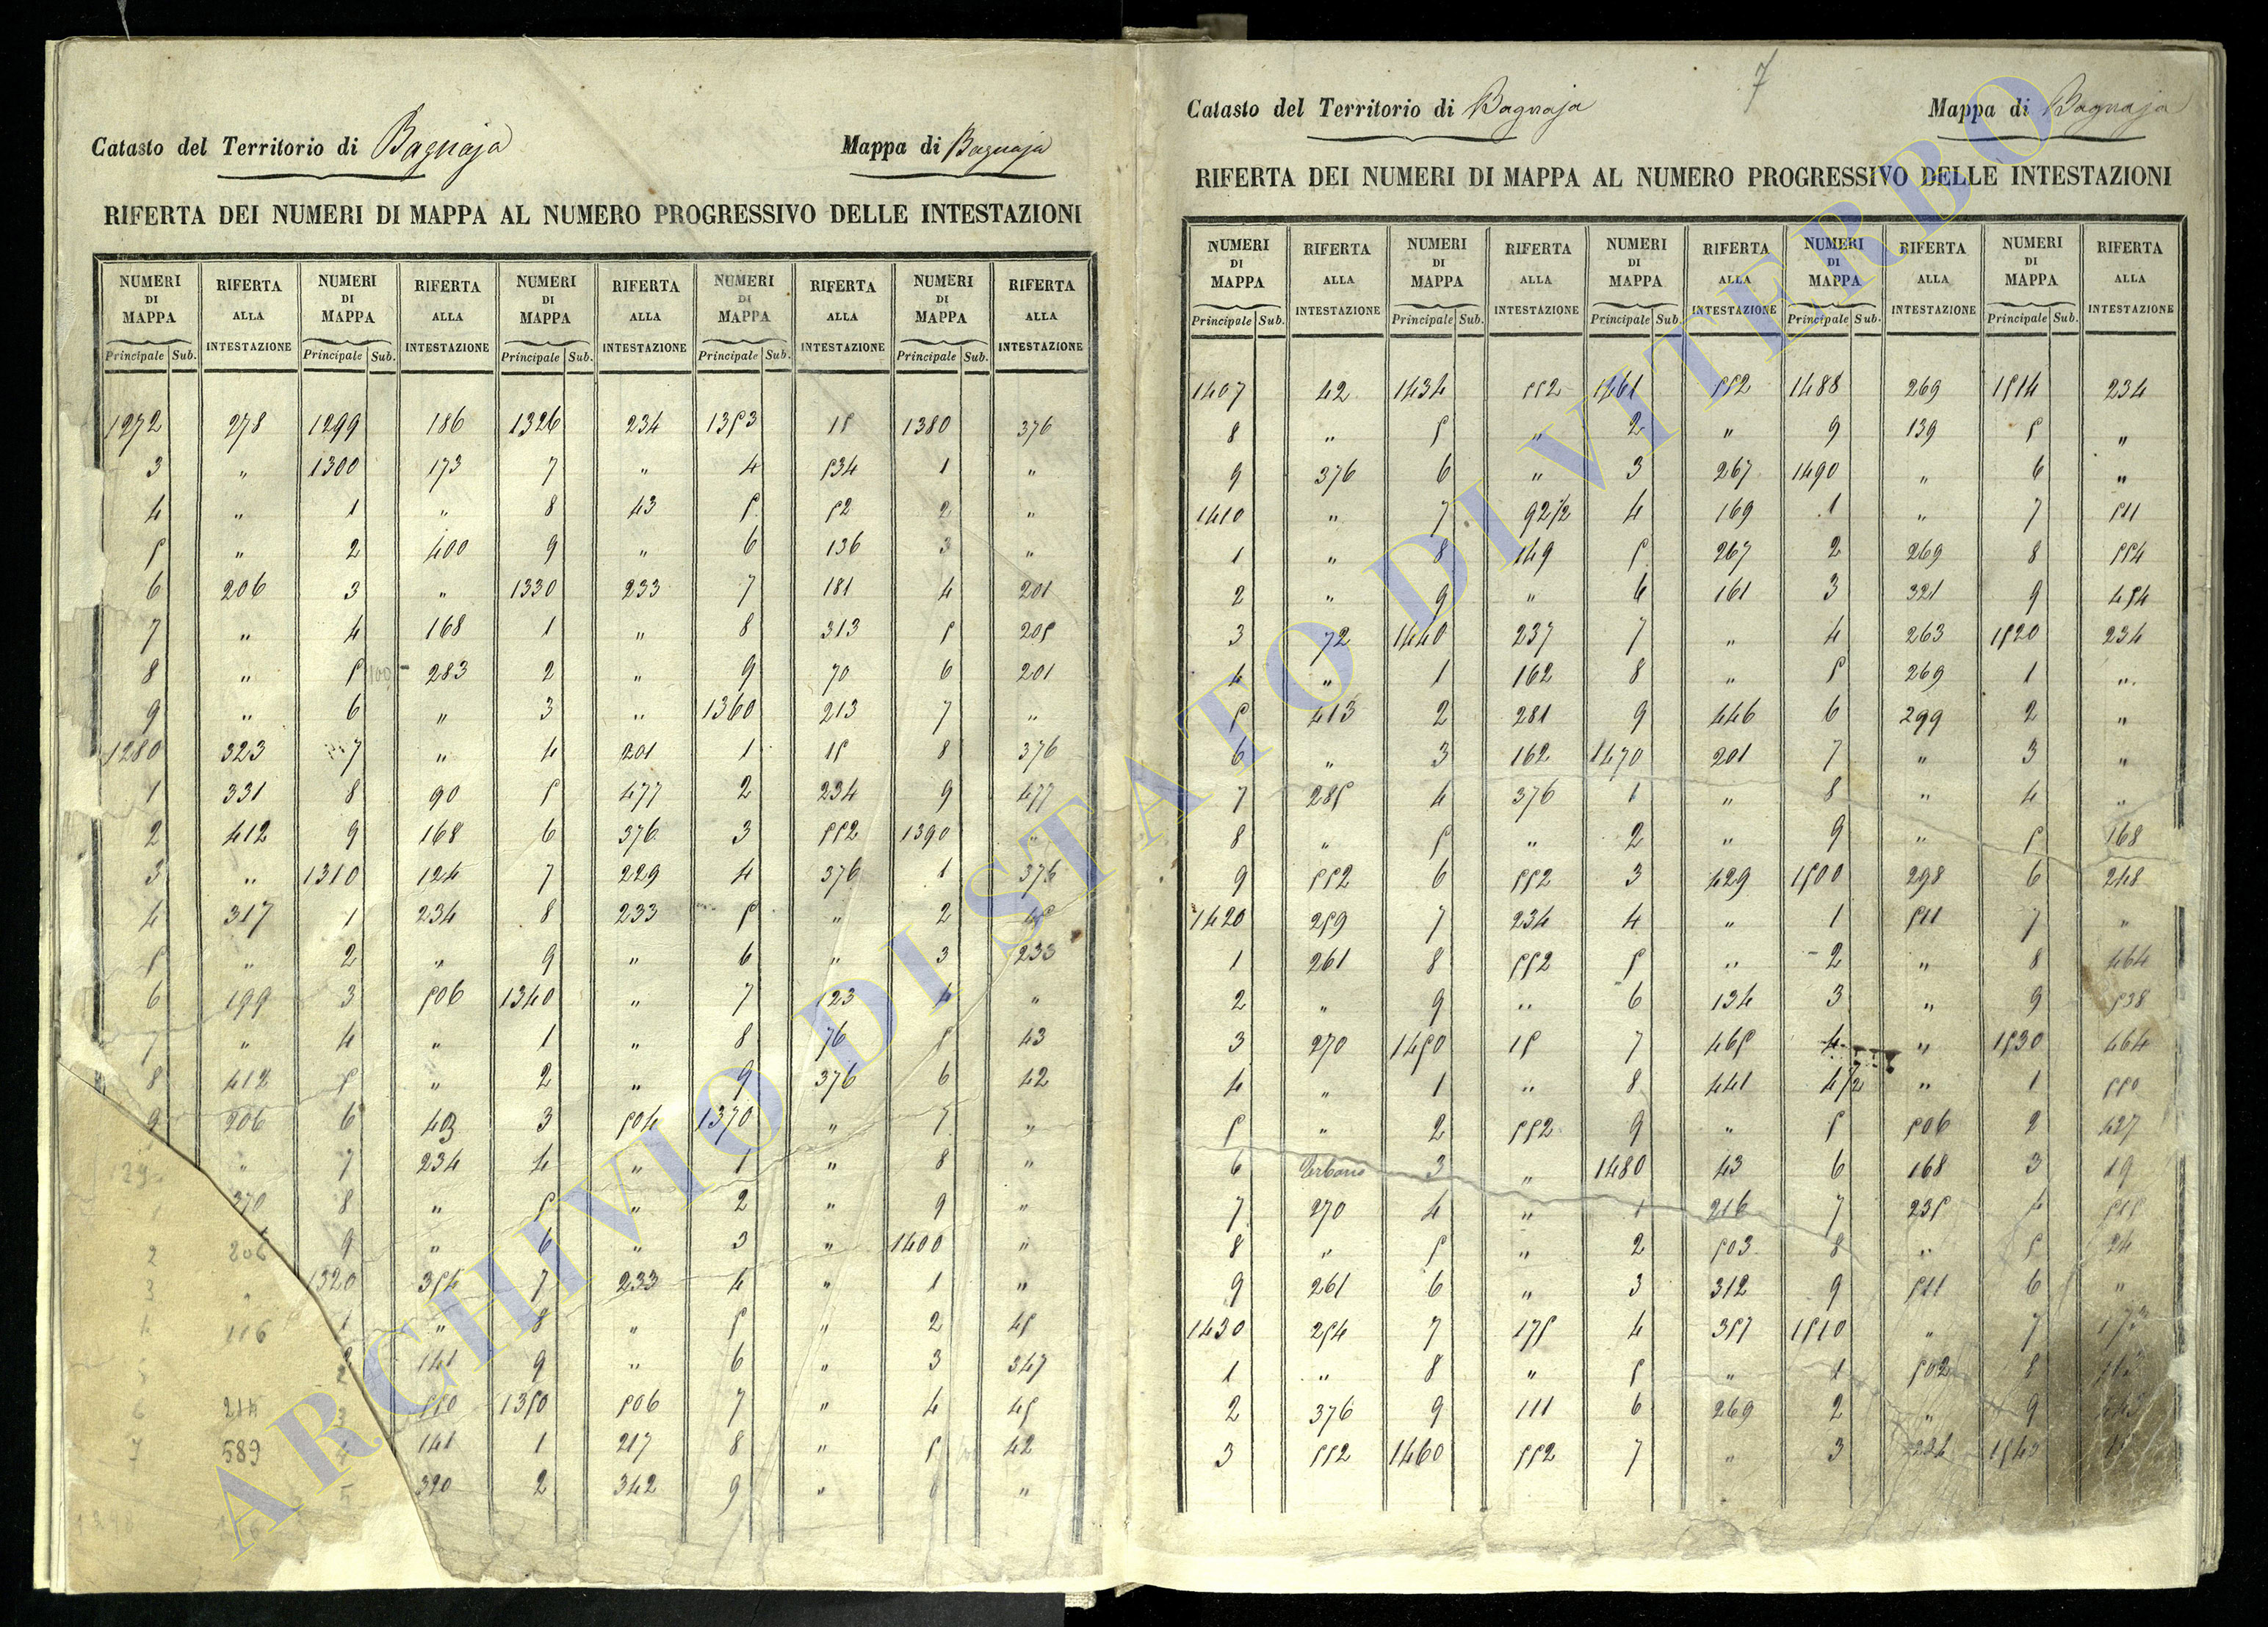 7
Catasto del Territorio di Bagnaja Mappa di Bagnaja
RIFERTA DEI NUMERI DI MAPPA AL NUMERO PROGRESSIVO DELLE INTESTAZIONI
NUMERI DI MAPPA RIFERTA ALLA INTESTAZIONE NUMERI DI MAPPA RIFERTA ALLA INTESTAZIONE NUMERI DI MAPPA RIFERTA ALLA INTESTAZIONE NUMERI DI MAPPA RIFERTA ALLA INTESTAZIONE NUMERI DI MAPPA RIFERTA ALLA INTESTAZIONE
Principale Sub. Principale Sub. Principale Sub. Principale Sub. Principale Sub.
1272 278 1299 186 1326 234 1353 15 1380 376
3 " 1300 173 7 " 4 534 1 "
4 " 1 " 8 43 5 52 2 "
5 " 2 400 9 " 6 136 3 "
6 206 3 " 1330 233 7 181 4 201
7 " 4 168 1 " 8 313 5 205
8 " 5 283 2 " 9 70 6 201
9 " 6 " 3 " 1360 213 7 "
1280 323 7 " 4 201 1 15 8 376
1 331 8 90 5 477 2 234 9 477
2 412 9 168 6 376 3 552 1390 "
3 " 1310 124 7 229 4 376 1 376
4 317 1 234 8 233 5 " 2 45
5 " 2 " 9 " 6 " 3 233
6 199 3 506 1340 " 7 123 4 "
7 " 4 " 1 " 8 76 5 43
8 412 5 " 2 " 9 376 6 42
9 206 6 43 3 504 1370 " 7 "
" 7 234 4 " 1 " 8 "
370 8 " 5 " 2 " 9 "
2 206 9 " 6 " 3 " 1400 "
3 " 1320 354 7 233 4 " 1 "
4 116 1 " 8 " 5 " 2 45
5 2 141 9 " 6 " 3 347
6 214 3 550 1350 506 7 " 4 45
7 589 4 141 1 217 8 " 5 42
5 320 2 342 9 " 6 "
Catasto del Territorio di Bagnaja Mappa di Bagnaja
RIFERTA DEI NUMERI DI MAPPA AL NUMERO PROGRESSIVO DELLE INTESTAZIONI
NUMERI DI MAPPA RIFERTA ALLA INTESTAZIONE NUMERI DI MAPPA RIFERTA ALLA INTESTAZIONE NUMERI DI MAPPA RIFERTA ALLA INTESTAZIONE NUMERI DI MAPPA RIFERTA ALLA INTESTAZIONE NUMERI DI MAPPA RIFERTA ALLA INTESTAZIONE
Principale Sub. Principale Sub. Principale Sub. Principale Sub. Principale Sub.
1407 42 1434 552 1461 552 1488 269 1514 234
8 " 5 " 2 " 9 139 5 "
9 376 6 " 3 267 1490 " 6 "
1410 " 7 92/2 4 169 1 " 7 511
1 " 8 149 5 267 2 269 8 554
2 " 9 " 6 161 3 321 9 454
3 72 1440 237 7 " 4 263 1520 234
4 " 1 162 8 " 5 269 1 "
5 413 2 281 9 446 6 299 2 "
6 " 3 162 1470 201 7 " 3 "
7 285 4 376 1 " 8 " 4 "
8 " 5 " 2 " 9 " 5 168
9 552 6 552 3 429 1500 298 6 248
1420 259 7 234 4 " 1 511 7 "
1 261 8 552 5 " 2 " 8 464
2 " 9 " 6 134 3 " 9 538
3 270 1450 15 7 465 4 " 1530 464
4 " 1 " 8 441 4/2 " 1 550
5 " 2 552 9 " 5 506 2 427
6 3 " 1480 43 6 168 3 19
7 270 4 " 1 216 7 235 4 515
8 " 5 " 2 503 8 " 5 24
9 261 6 " 3 312 9 511 6 "
1430 254 7 175 4 357 1510 " 7
1 " 8 " 5 " 1 502 8
2 376 9 111 6 269 2 " 9
3 552 1460 552 7 " 3 224
ARCHIVIO DI STATO DI VITERBO